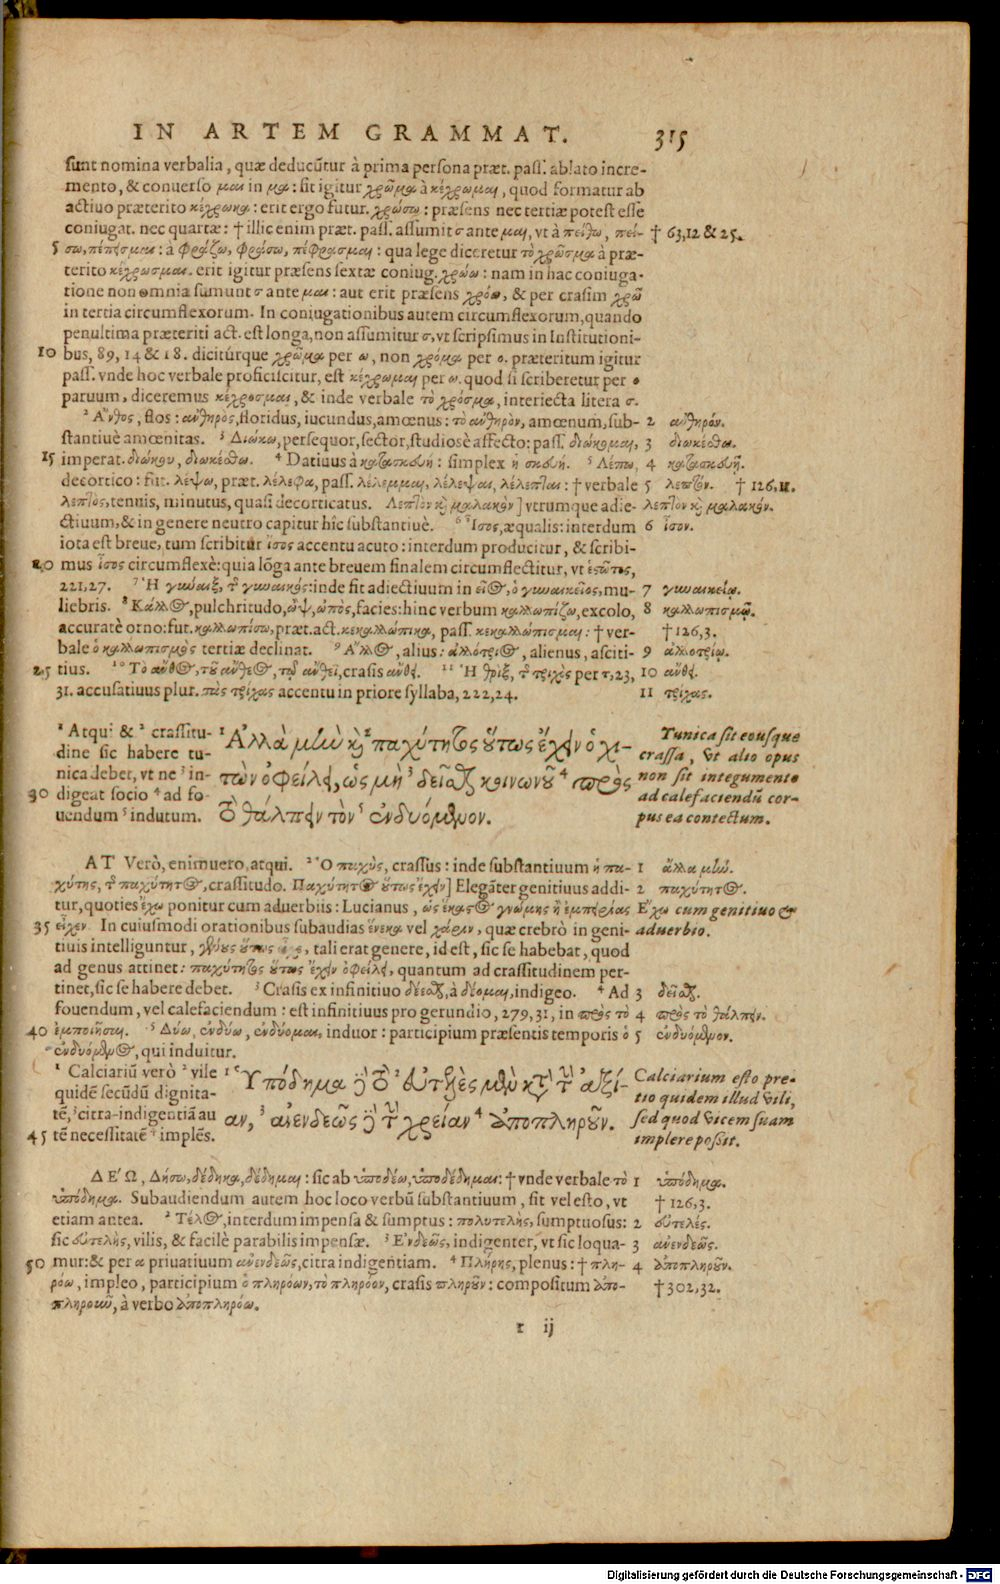 IN ARTEM GRAMMAT. 315
sunt nomina verbalia, quæ deducũtur à prima persona præt. pass. ablato incre-
mento, & conuerso μαι in μα: sit igitur χρῶμα à κέχρωμαι, quod formatur ab
actiuo præterito κέχρωκα: erit ergo futur. χρώσω: præsens nec tertiæ potest esse
coniugat. nec quartæ: † illic enim præt. pass. assumit σ ante μαι, vt à πείθω, πεί- † 63,12 & 25.
5 σω, πέπεισμαι: à φράζω, φράσω, πέφρασμαι: qua lege diceretur τὸ χρῶσμα à præ-
terito κέχρωσμαι. erit igitur præsens sextæ coniug. χρώω: nam in hac coniuga-
tione non omnia sumunt σ ante μαι: aut erit præsens χρόω, & per crasim χρῶ
in tertia circumflexorum. In coniugationibus autem circumflexorum, quando
penultima præteriti act. est longa, non assumitur σ, vt scripsimus in Institutioni-
10 bus, 89, 14 & 18. dicitúrque χρῶμα per ω, non χρόμα per ο. præteritum igitur
pass. vnde hoc verbale proficiscitur, est κέχρωμαι per ω. quod si scriberetur per ο
paruum, diceremus κέχροσμαι, & inde verbale τὸ χρόσμα, interiecta litera σ.
2 Ἄνθος, flos: ἀνθηρὸς, floridus, iucundus, amœnus: τὸ ἀνθηρὸν, amœnum, sub- 2 ἀνθηρόν.
stantiuè amœnitas. 3 Διώκω, persequor, sector, studiosè affecto: pass. διώκομαι, 3 διωκέσθω.
15 imperat. διώκου, διωκέσθω. 4 Datiuus à κατασκευή: simplex ἡ σκευή. 5 Λέπω, 4 κατασκευῇ.
decortico: fut. λέψω, præt. λέλεφα, pass. λέλεμμαι, λέλεψαι, λέλεπται: † verbale 5 λεπτόν. † 126,11.
λεπτὸς, tenuis, minutus, quasi decorticatus. Λεπτὸν καὶ μαλακὸν] vtrumque adie- λεπτὸν καὶ μαλακόν.
ctiuum, & in genere neutro capitur hîc substantiuè. 6 Ἴσος, æqualis: interdum 6 ἴσον.
iota est breue, tum scribitur ἴσος accentu acuto: interdum producitur, & scribi-
20 mus ἶσος circumflexè: quia lõga ante breuem finalem circumflectitur, vt ἑστῶτος,
221,27. 7 Ἡ γυναιξ, τῆς γυναικός: inde fit adiectiuum in ειος, ὁ γυναικεῖος, mu- 7 γυναικείῳ.
liebris. 8 Κάλλος, pulchritudo, ὢψ, ὠπὸς, facies: hinc verbum καλλωπίζω, excolo, 8 καλλωπισμῷ.
accuratè orno: fut. καλλωπίσω, præt. act. κεκαλλώπικα, pass. κεκαλλώπισμαι: † ver- † 126,3.
bale ὁ καλλωπισμὸς tertiæ declinat. 9 Ἄλλος, alius: ἀλλότριος, alienus, asciti- 9 ἀλλοτρίῳ.
25 tius. 10 Τὸ ἄνθος, τοῦ ἄνθεος, τῷ ἄνθεϊ, crasis ἄνθει. 11 Ἡ θρὶξ, τῆς τριχὸς per τ, 23, 10 ἄνθει.
31. accusatiuus plur. τὰς τρίχας accentu in priore syllaba, 222,24. 11 τρίχας.
1 Atqui & 2 crassitu-
dine sic habere tu-
nica debet, vt ne 3 in-
30 digeat socio 4 ad fo-
uendum 5 indutum.
1 Ἀλλὰ μὴν καὶ 2 παχύτητος οὕτως ἔχειν ὁ χι-
τὼν ὀφείλει, ὡς μὴ 3 δεῖσθαι κοινωνοῦ 4 πρὸς
τὸ θάλπειν τὸν 5 ἐνδυόμενον.
Tunica sit eousque
crassa, vt alio opus
non sit integumento
ad calefaciendũ cor-
pus ea contectum.
AT Verò, enimuero, atqui. 2 Ὁ παχὺς, crassus: inde substantiuum ἡ πα- 1 ἀλλὰ μήν.
χύτης, τῆς παχύτητος, crassitudo. Παχύτητος οὕτως ἔχειν] Elegãter genitiuus addi- 2 παχύτητος.
tur, quoties ἔχω ponitur cum aduerbiis: Lucianus, ὡς ἕκαστος γνώμης ἢ ἐμπειρίας Ἔχω cum genitiuo &
35 εἶχεν. In cuiusmodi orationibus subaudias ἕνεκα vel χάριν, quæ crebrò in geni- aduerbio.
tiuis intelliguntur, γένους οὕτως εἶχε, tali erat genere, id est, sic se habebat, quod
ad genus attinet: παχύτητος οὕτως ἔχειν ὀφείλει, quantum ad crassitudinem per-
tinet, sic se habere debet. 3 Crasis ex infinitiuo δέεσθαι, à δέομαι, indigeo. 4 Ad 3 δεῖσθαι.
fouendum, vel calefaciendum: est infinitiuus pro gerundio, 279,31, in πρὸς τὸ 4 πρὸς τὸ θάλπειν.
40 ἐμποιῆσαι. 5 Δύω, ἐνδύω, ἐνδύομαι, induor: participium præsentis temporis ὁ 5 ἐνδυόμενον.
ἐνδυόμενος, qui induitur.
1 Calciariũ verò 2 vile
quidẽ secũdũ dignita-
tẽ, 3 citra-indigentiã au
45 tẽ necessitatẽ 4 implẽs.
1 Ὑπόδημα δὲ τὸ 2 εὐτελὲς μὲν κατὰ τὴν ἀξί-
αν, 3 ἀνενδεῶς δὲ τὴν χρείαν 4 ἀποπληροῦν.
Calciarium esto pre-
tio quidem illud vili,
sed quod vicem suam
implere possit.
ΔΕΏ, Δήσω, δέδηκα, δέδημαι: sic ab ὑποδέω, ὑποδέδημαι: † vnde verbale τὸ 1 ὑπόδημα.
ὑπόδημα. Subaudiendum autem hoc loco verbũ substantiuum, sit vel esto, vt † 126,3.
etiam antea. 2 Τέλος, interdum impensa & sumptus: πολυτελὴς, sumptuosus: 2 εὐτελές.
sic εὐτελὴς, vilis, & facilè parabilis impensæ. 3 Ἐνδεῶς, indigenter, vt sic loqua- 3 ἀνενδεῶς.
50 mur: & per α priuatiuum ἀνενδεῶς, citra indigentiam. 4 Πλήρης, plenus: † πλη- 4 ἀποπληροῦν.
ρόω, impleo, participium ὁ πληρόων, τὸ πληρόον, crasis πληροῦν: compositum ἀπο- † 302,32.
πληροῦν, à verbo ἀποπληρόω.
r ij
Digitalisierung gefördert durch die Deutsche Forschungsgemeinschaft - DFG